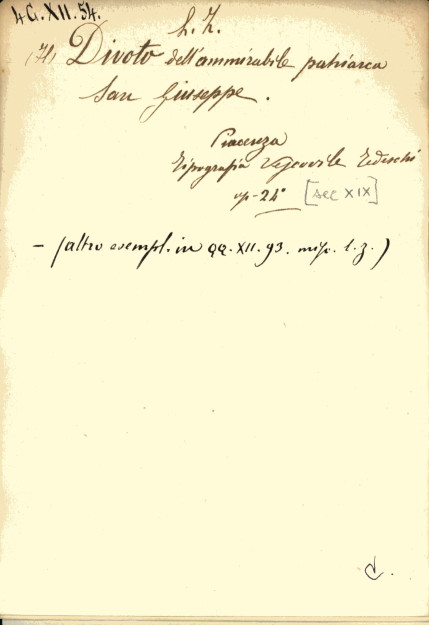 4G.XII.54.
L. Z.
(Il) Divoto dell'ammirabile patriarca
San Giuseppe.
Piacenza
Tipografia Vescovile Tedeschi
op-24° [sec XIX]
- (altro esempl. in QQ.XII.93. misc. l.z.)